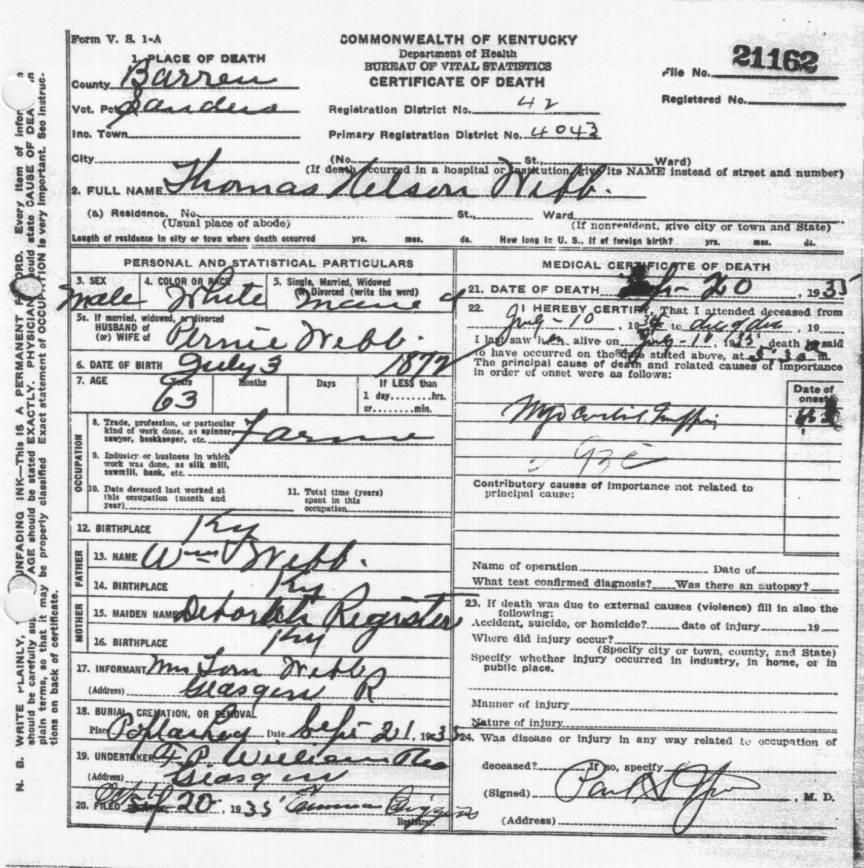 Form V. S. 1-A
COMMONWEALTH OF KENTUCKY
Department of Health
BUREAU OF VITAL STATISTICS
CERTIFICATE OF DEATH
File No. 21162
Registered No.
1. PLACE OF DEATH
County Barren
Vot. Pct. Sanders
Inc. Town
City
Registration District No. 42
Primary Registration District No. 4043
(No. St. Ward)
(If death occurred in a hospital or institution, give its NAME instead of street and number)
2. FULL NAME Thomas Nelson Webb.
(a) Residence. No. St., Ward
(Usual place of abode) (If nonresident, give city or town and State)
Length of residence in city or town where death occurred yrs. mos. ds. How long in U. S., if of foreign birth? yrs. mos. ds.
PERSONAL AND STATISTICAL PARTICULARS
3. SEX
male
4. COLOR OR RACE
White
5. Single, Married, Widowed
or Divorced (write the word)
5a. If married, widowed, or divorced
HUSBAND of
(or) WIFE of Pernie Webb.
6. DATE OF BIRTH July 3 1872
7. AGE Years Months Days If LESS than
63 1 day........hrs.
or........min.
OCCUPATION
8. Trade, profession, or particular
kind of work done, as spinner,
sawyer, bookkeeper, etc.
9. Industry or business in which
work was done, as silk mill,
sawmill, bank, etc.
10. Date deceased last worked at
this occupation (month and
year)
11. Total time (years)
spent in this
occupation
12. BIRTHPLACE Ky
FATHER
13. NAME Wm Webb.
14. BIRTHPLACE Ky
MOTHER
15. MAIDEN NAME Deborah Register
16. BIRTHPLACE Ky
17. INFORMANT Mrs Tom Webb
(Address) R
18. BURIAL, CREMATION, OR REMOVAL
Place Date Sept 21, 1935
19. UNDERTAKER
(Address)
20. FILED 20, 1935
Registrar.
MEDICAL CERTIFICATE OF DEATH
21. DATE OF DEATH 20, 1935
22. I HEREBY CERTIFY, That I attended deceased from
I last saw alive on death is said
to have occurred on the date stated above, at 5:30 m.
The principal cause of death and related causes of importance
in order of onset were as follows:
Date of
onset
Contributory causes of importance not related to
principal cause:
Name of operation Date of
What test confirmed diagnosis? Was there an autopsy?
23. If death was due to external causes (violence) fill in also the
following:
Accident, suicide, or homicide? date of injury 19
Where did injury occur?
(Specify city or town, county, and State)
Specify whether injury occurred in industry, in home, or in
public place.
Manner of injury
Nature of injury
24. Was disease or injury in any way related to occupation of
deceased? If so, specify
(Signed) , M. D.
(Address)